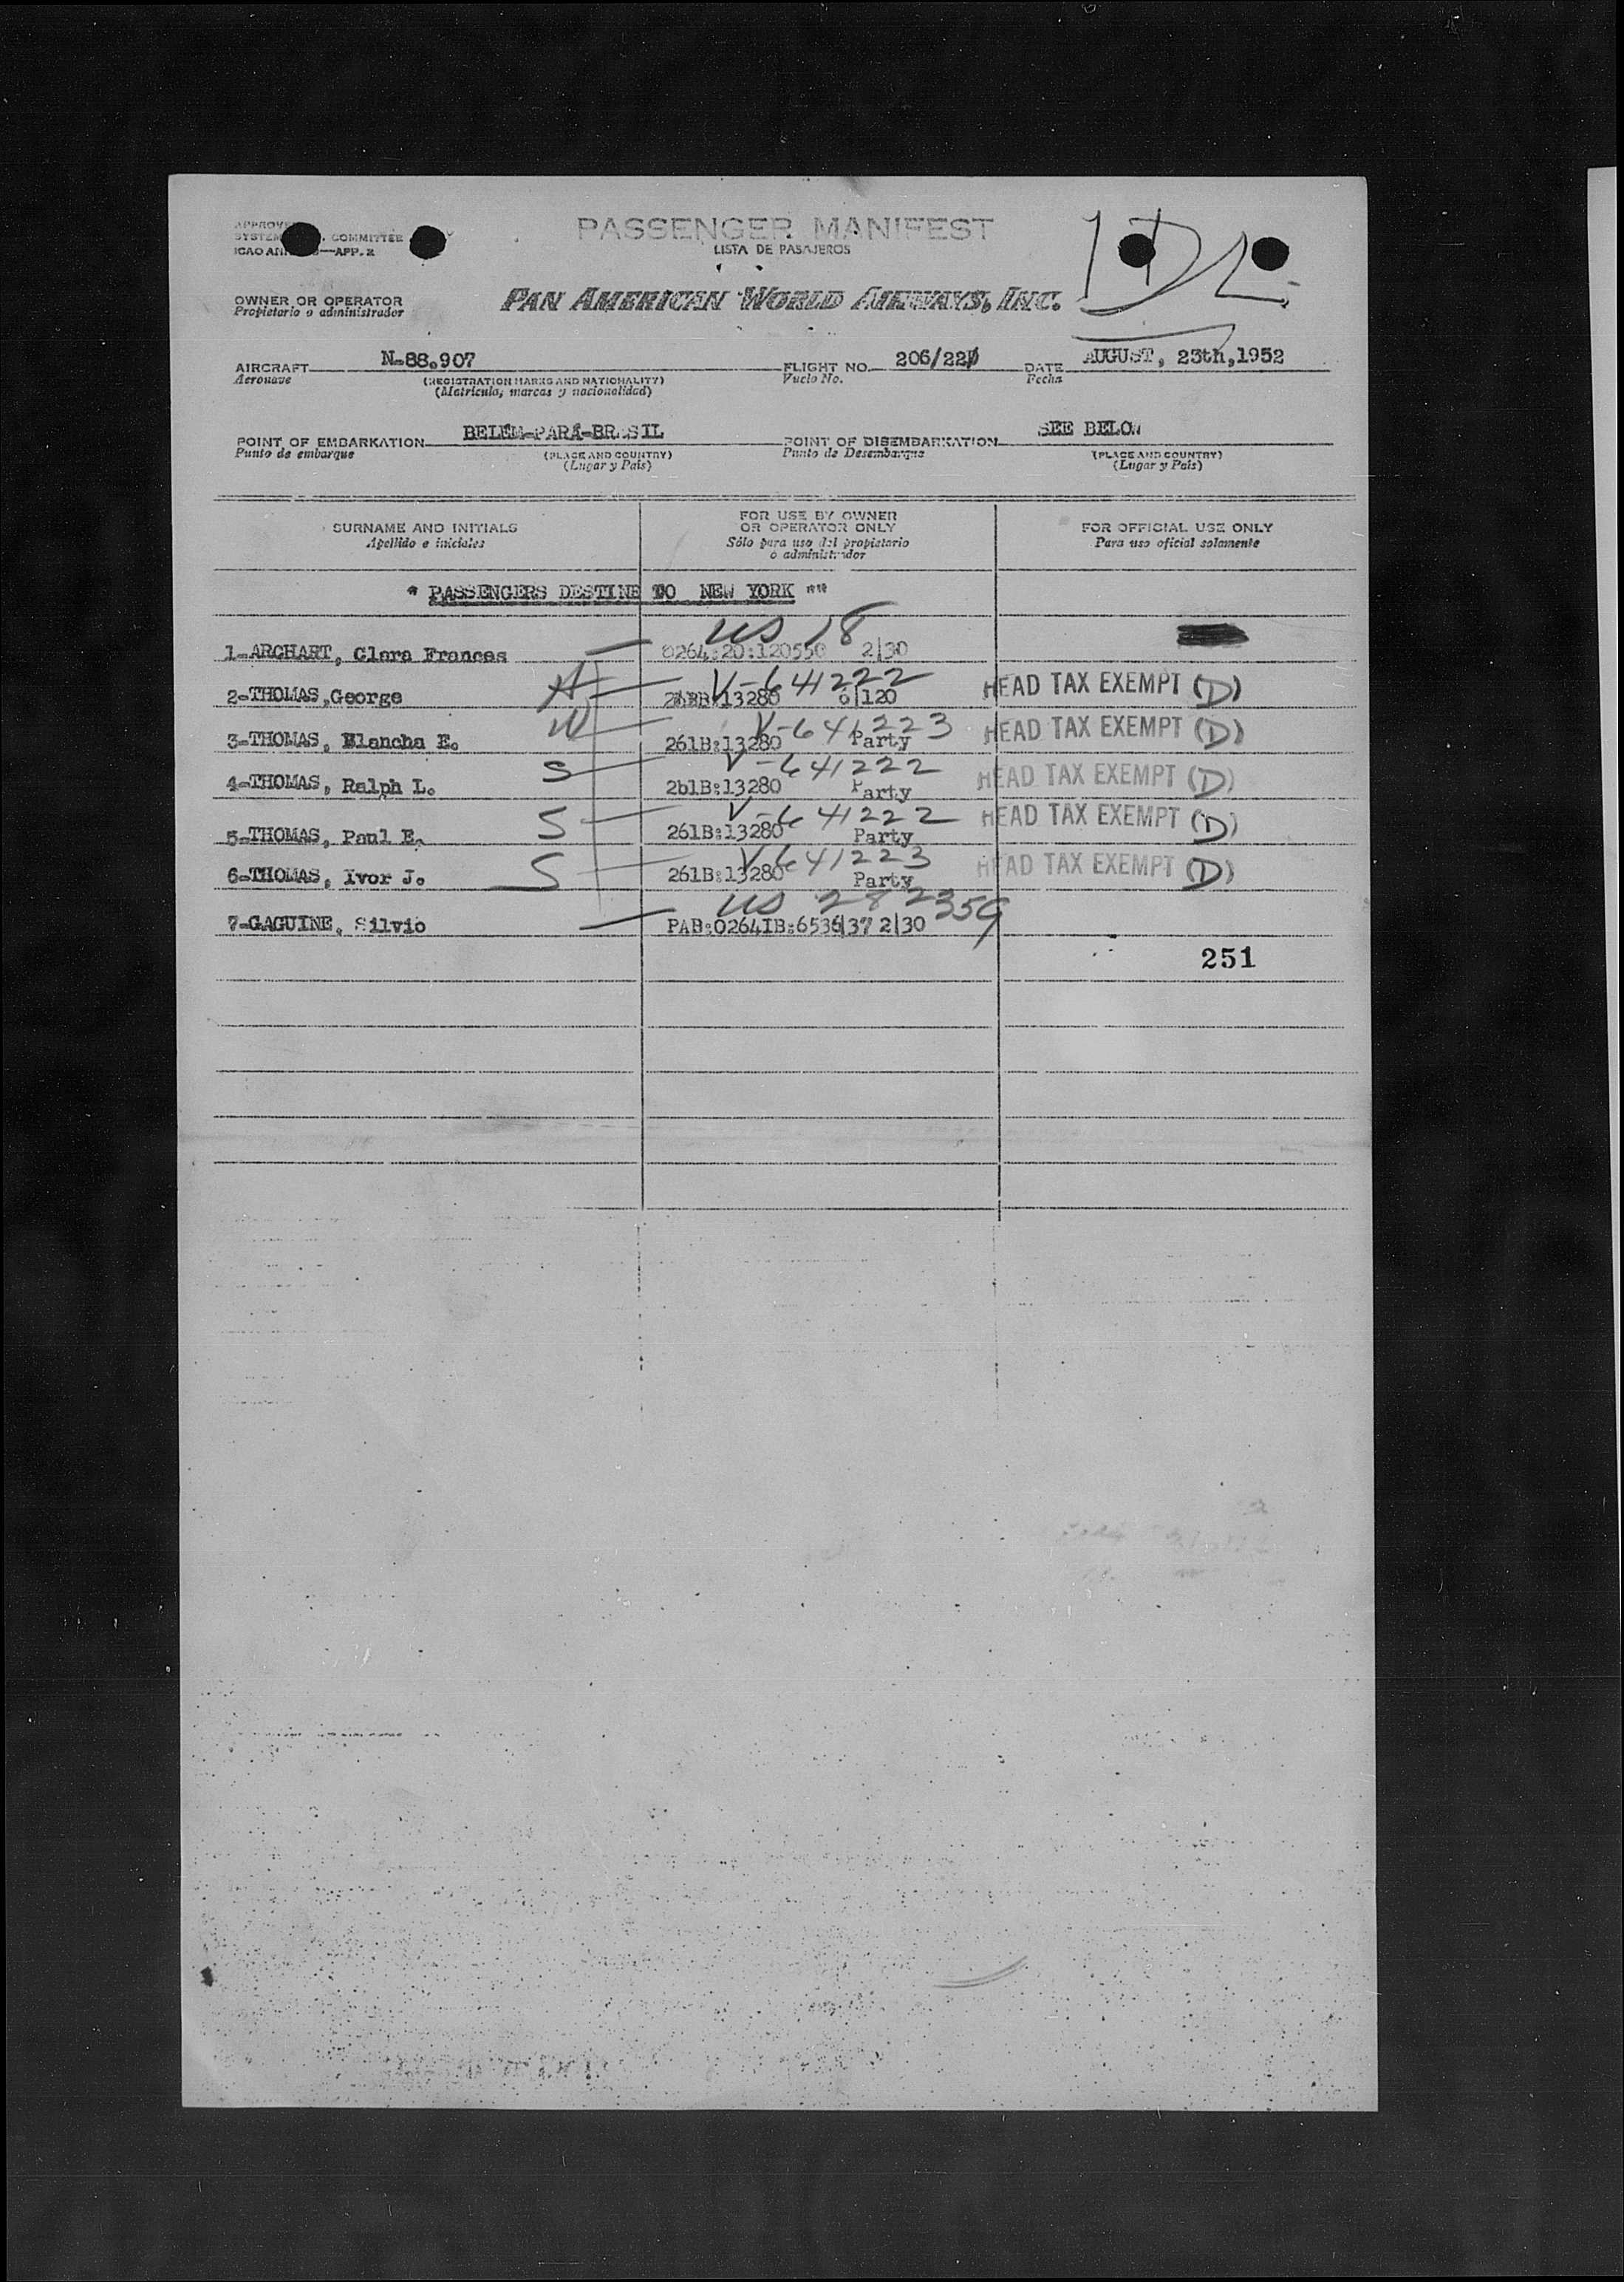 PASSENGER MANIFEST
LISTA DE PASAJEROS
COMMITTEE
—APP. 2
OWNER OR OPERATOR
Propietario o administrador
PAN AMERICAN WORLD AIRWAYS, INC.
AIRCRAFT N-88.907 FLIGHT NO. 206/22 DATE AUGUST, 23th,1952
Aeronave (REGISTRATION MARKS AND NATIONALITY) Vuelo No. Fecha
(Matricula, marcas y nacionalidad)
POINT OF EMBARKATION BELÉM-PARÁ-BRASIL POINT OF DISEMBARKATION SEE BELOW
Punto de embarque (PLACE AND COUNTRY) Punto de Desembarque (PLACE AND COUNTRY)
(Lugar y País) (Lugar y País)
SURNAME AND INITIALS FOR USE BY OWNER OR OPERATOR ONLY FOR OFFICIAL USE ONLY
Apellido e iniciales Sólo para uso del propietario o administrador Para uso oficial solamente
* PASSENGERS DESTINE TO NEW YORK **
US 18
1-ARCHART, Clara Frances 0264:20:120550 2|30
V-641222
2-THOMAS,George H 13280 6|120 HEAD TAX EXEMPT (D)
V-641223
3-THOMAS, Blancha E. W 261B:13280 Party HEAD TAX EXEMPT (D)
V-641222
4-THOMAS, Ralph L. S 261B:13280 Party HEAD TAX EXEMPT (D)
V-641222
5-THOMAS, Paul E. S 261B:13280 Party HEAD TAX EXEMPT (D)
V641223
6-THOMAS, Ivor J. S 261B:13280 Party HEAD TAX EXEMPT (D)
US 282359
7-GAGUINE, Silvio PAB:0264IB:6536|37 2|30
251